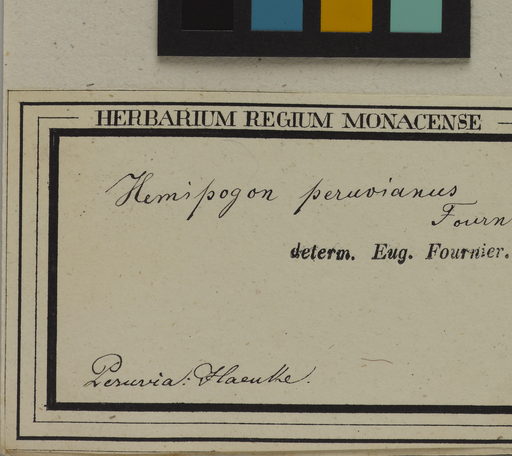 HERBARIUM REGIUM MONACENSE
Hemipogon peruvianus
Fourn
determ. Eug. Fournier.
Peruvia: Haenke.